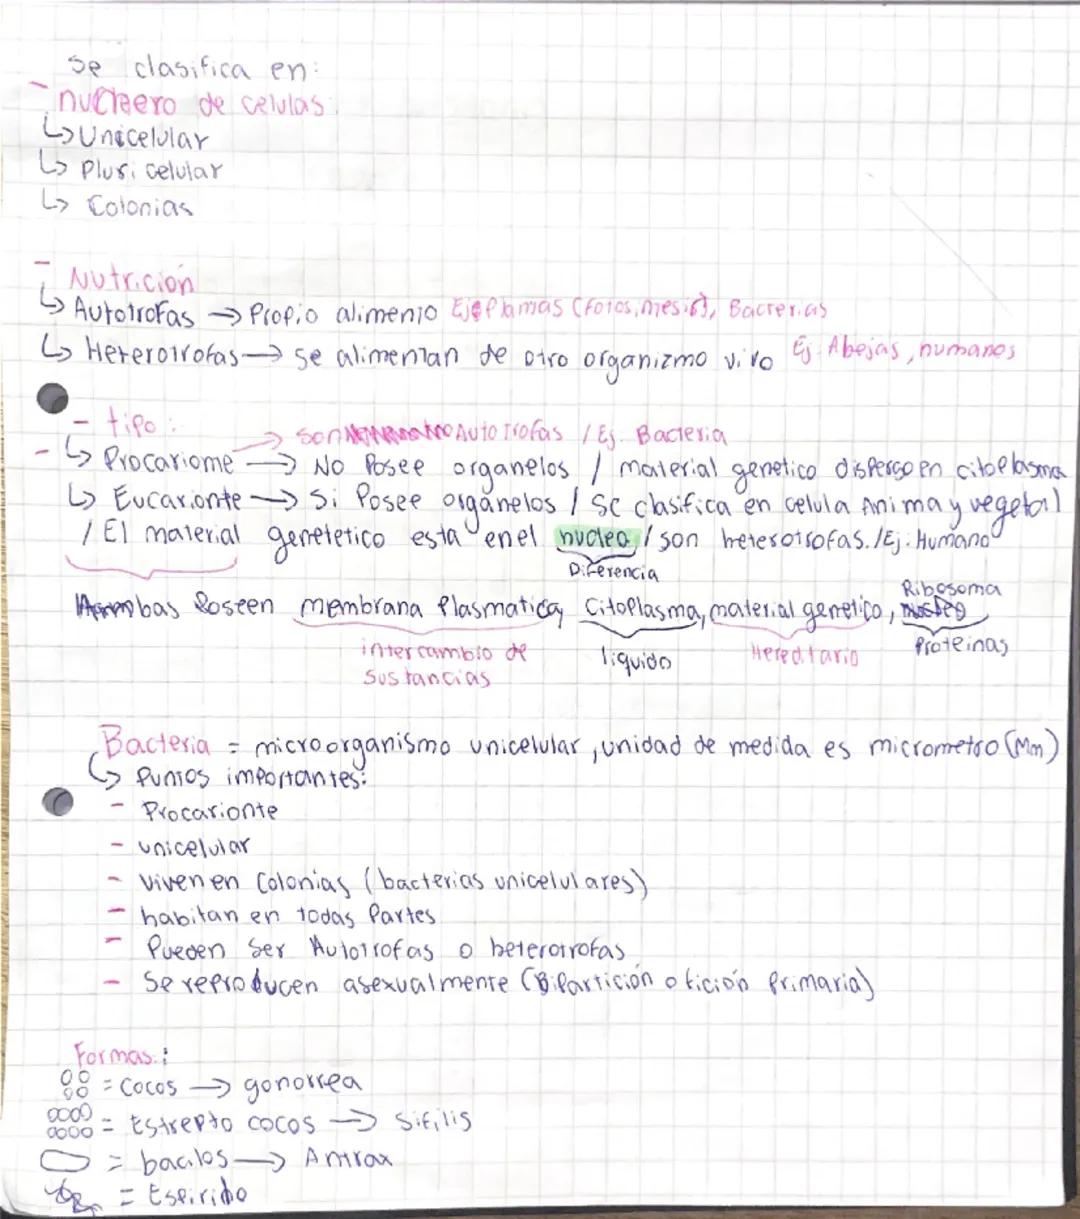 Se clasifica en:
- nucleero de celulas:
↳ Unicelular
↳ Pluricelular
↳ Colonias
- Nutrición
↳ Autotrofas → Propio alimento Ej: Plamas (fotosintesis), Bacterias
↳ Heterotrofas → Se alimentan de otro organizmo vivo Ej: Abejas, humanos
- tipo:
→ Son Autotrofas / Ej. Bacteria
- ↳ Procarionte → No Posee organelos / material genetico disperso en citoplasma
↳ Eucarionte → Si Posee organelos / Se clasifica en celula Anima y vegetal
/ El material genetetico esta en el nucleo / son heterotrofas. / Ej: Humano
Diferencia
Ambas Poseen membrana Plasmatica, Citoplasma, material genetico, Ribosoma
intercambio de sustancias
liquido
Hereditario
Proteinas
Bacteria = microorganismo unicelular, unidad de medida es micrometro (Mm)
↳ Puntos importantes:
- Procarionte
- unicelular
- viven en Colonias (bacterias unicelulares)
- habitan en todas Partes
- Pueden Ser Autotrofas o heterotrofas
- Se reproducen asexualmente (Bipartición o fición Primaria)
Formas:
= Cocos → gonorrea
= Estrepto cocos → Sifilis
= bacilos → Antrax
= Espirido